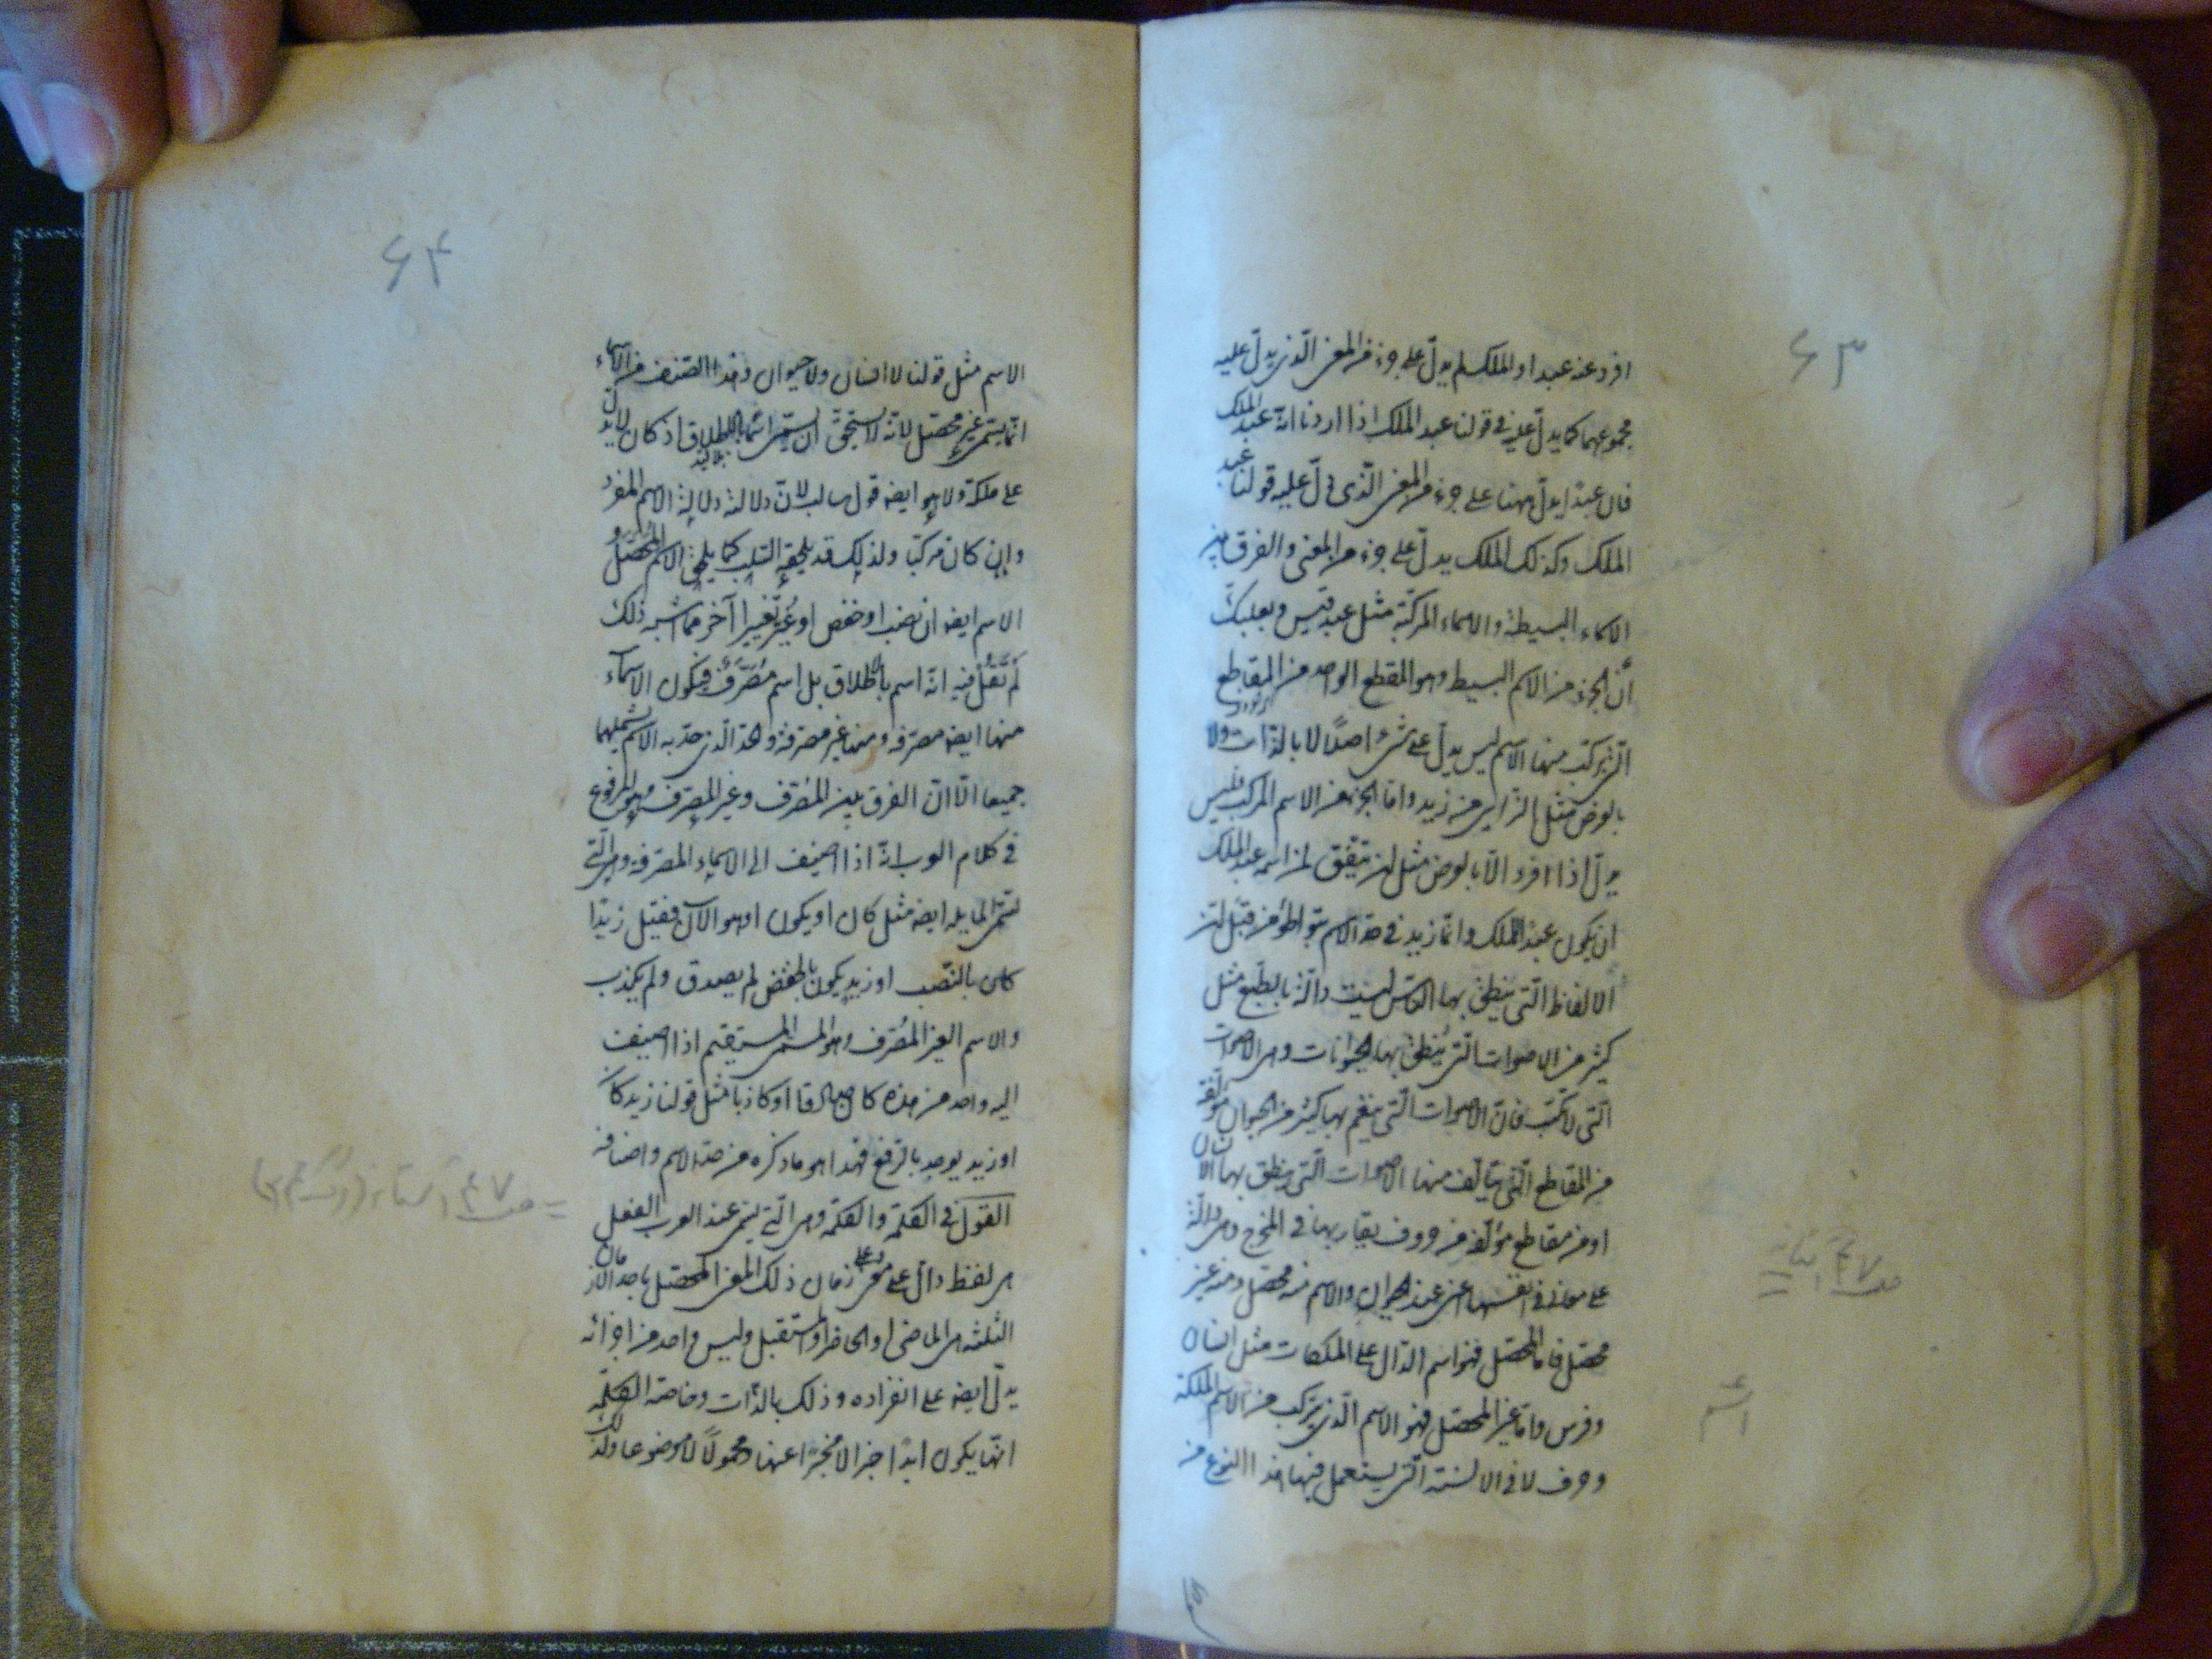 ۶۳
افرد عنه عبد او الملك لم يدل على جزء من المعنى الذى يدل عليه
مجموعهما كما يدل عليه فى قولنا عبد الملك اذا اردنا انه عبد الملك
فان عبدا يدل ههنا على جزء من المعنى الذى دل عليه قولنا عبد
الملك وكذلك الملك يدل على جزء من المعنى والفرق بين
الاسماء البسيطة والاسماء المركبة مثل عبد قيس وبعلبك
أن الجزء من الاسم البسيط وهو المقطع الواحد من المقاطع
التى تركب منها الاسم ليس يدل على شئ اصلا لا بالذات ولا
بالعرض مثل الزاى من زيد واما الجزء من الاسم المركب فليس
يدل اذا افرد الا بالعرض مثل ان يتفق لمن اسمه عبد الملك
ان يكون عبد الملك وانما زيد فى حد الاسم بتواطؤ من قبل ان
الالفاظ التى ينطق بها الناس ليست دالة بالطبع مثل
كثير من الاصوات التى ينطق بها الحيوانات وهى الاصوات
التى لا تكتب فان الاصوات التى ينغم بها كثير من الحيوان مؤلفة
من المقاطع التى يتألف منها الاصوات التى ينطق بها الانسان
او من مقاطع مؤلفة من حروف يقاربها فى المخرج وهى دالة
على معان فى انفسها اعنى عند الحيوان والاسم منه محصل ومنه غير
محصل فاما المحصل فهو اسم الدال على الملكات مثل انسان
وفرس واما غير المحصل فهو الاسم الذى يركب من الاسم الملكة
وحرف لا فى الالسنة التى يستعمل فيها هذا النوع من
۶۴
الاسم مثل قولنا لا انسان ولا حيوان وهذا الصنف من الاسماء
انما يسمى غير محصل لانه لا يستحق ان يسمى اسما باطلاق اذ كان لا يدل
على ملكة ولا هو ايضه قول سالب لان دلالته دلالة الاسم المفرد
وان كان مركبا ولذلك قد يلحقه السلب كما يلحق الاسم المحصل
الاسم ايضه ان نصب او خفض او غير تغييرا آخر مما اشبه ذلك
لم نقل فيه انه اسم باطلاق بل اسم مصرف فيكون الاسماء
منها ايضه مصرفة ومنها غير مصرفة والحد الذى حد به الاسم يشملهما
جميعا الا ان الفرق بين المصرف وغير المصرف وهو المرفوع
فى كلام العرب انه اذا اضيف الى الاسماء المصرفة وهى التى
تسمى المايلة ايضه مثل كان او يكون او هو الآن فقيل زيدا
كان بالنصب او زيد يكون بالخفض لم يصدق ولم يكذب
والاسم الغير المصرف وهو المسمى المستقيم اذا اضيف
اليه واحد من هذه كان صادقا او كاذبا مثل قولنا زيد كان
او زيد يوجد بالرفع فهذا هو ما ذكره من حد الاسم واصنافه
القول فى الكلمة والكلمة وهى التى يسمى عند العرب الفعل
هى لفظ دال على معنى وعلى زمان ذلك المعنى المحصل باحد الازمان
الثلثة هى الماضى او الحاضر او المستقبل وليس واحد من اجزائه
يدل ايضه على انفراده وذلك بالذات وخاصة الكلمة
انها يكون ابدا خبرا لا مخبرا عنها ومحمولا لا موضوعا ولذلك